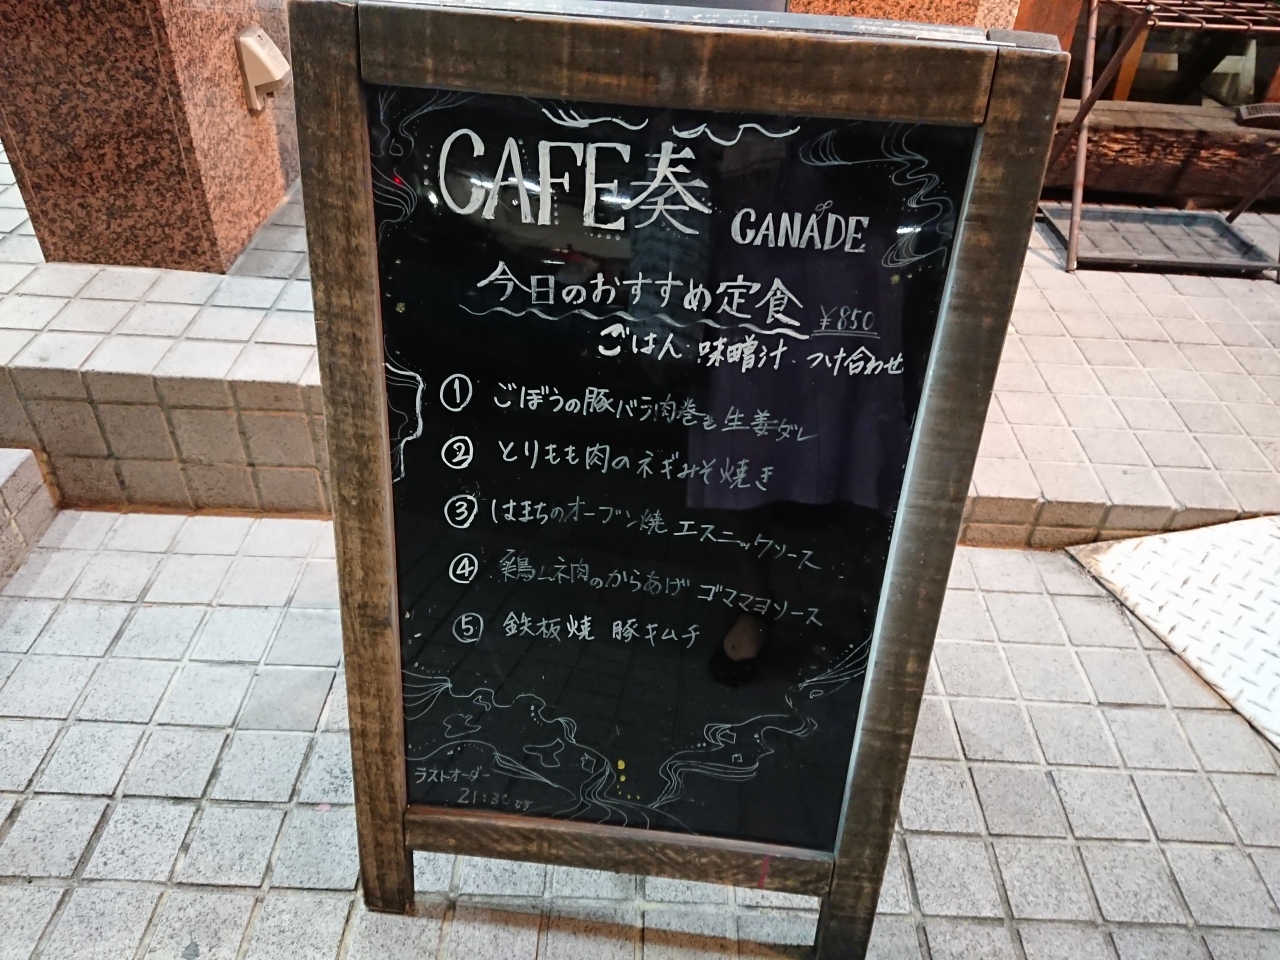 CAFE奏 CANADE
今日のおすすめ定食 ¥850
ごはん・味噌汁・つけ合わせ
① ごぼうの豚バラ肉巻き 生姜ダレ
② とりもも肉のネギみそ焼き
③ はまちのオーブン焼 エスニックソース
④ 鶏ムネ肉のからあげ ゴママヨソース
⑤ 鉄板焼 豚キムチ
ラストオーダー
21:30